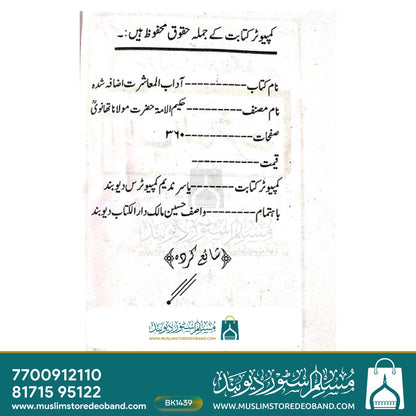 کمپیوٹر کتابت کے جملہ حقوق محفوظ ہیں :۔
نام کتاب ---------- آداب المعاشرت اضافہ شدہ
نام مصنف --------- حکیم الامۃ حضرت مولانا تھانویؒ
صفحات ---------- ۳۶۰
قیمت ----------
کمپیوٹر کتابت ------- یاسر ندیم کمپیوٹرس دیوبند
باہتمام -------- واصف حسین مالک دارالکتاب دیوبند
مسلم سٹور دیوبند
WWW.MUSLIMSTOREDEOBAND.COM
﴿شائع کردہ﴾
مسلم سٹور دیوبند
WWW.MUSLIMSTOREDEOBAND.COM
7700912110
81715 95122
BK1439
www.muslimstoredeoband.com
مسلم سٹور دیوبند
WWW.MUSLIMSTOREDEOBAND.COM